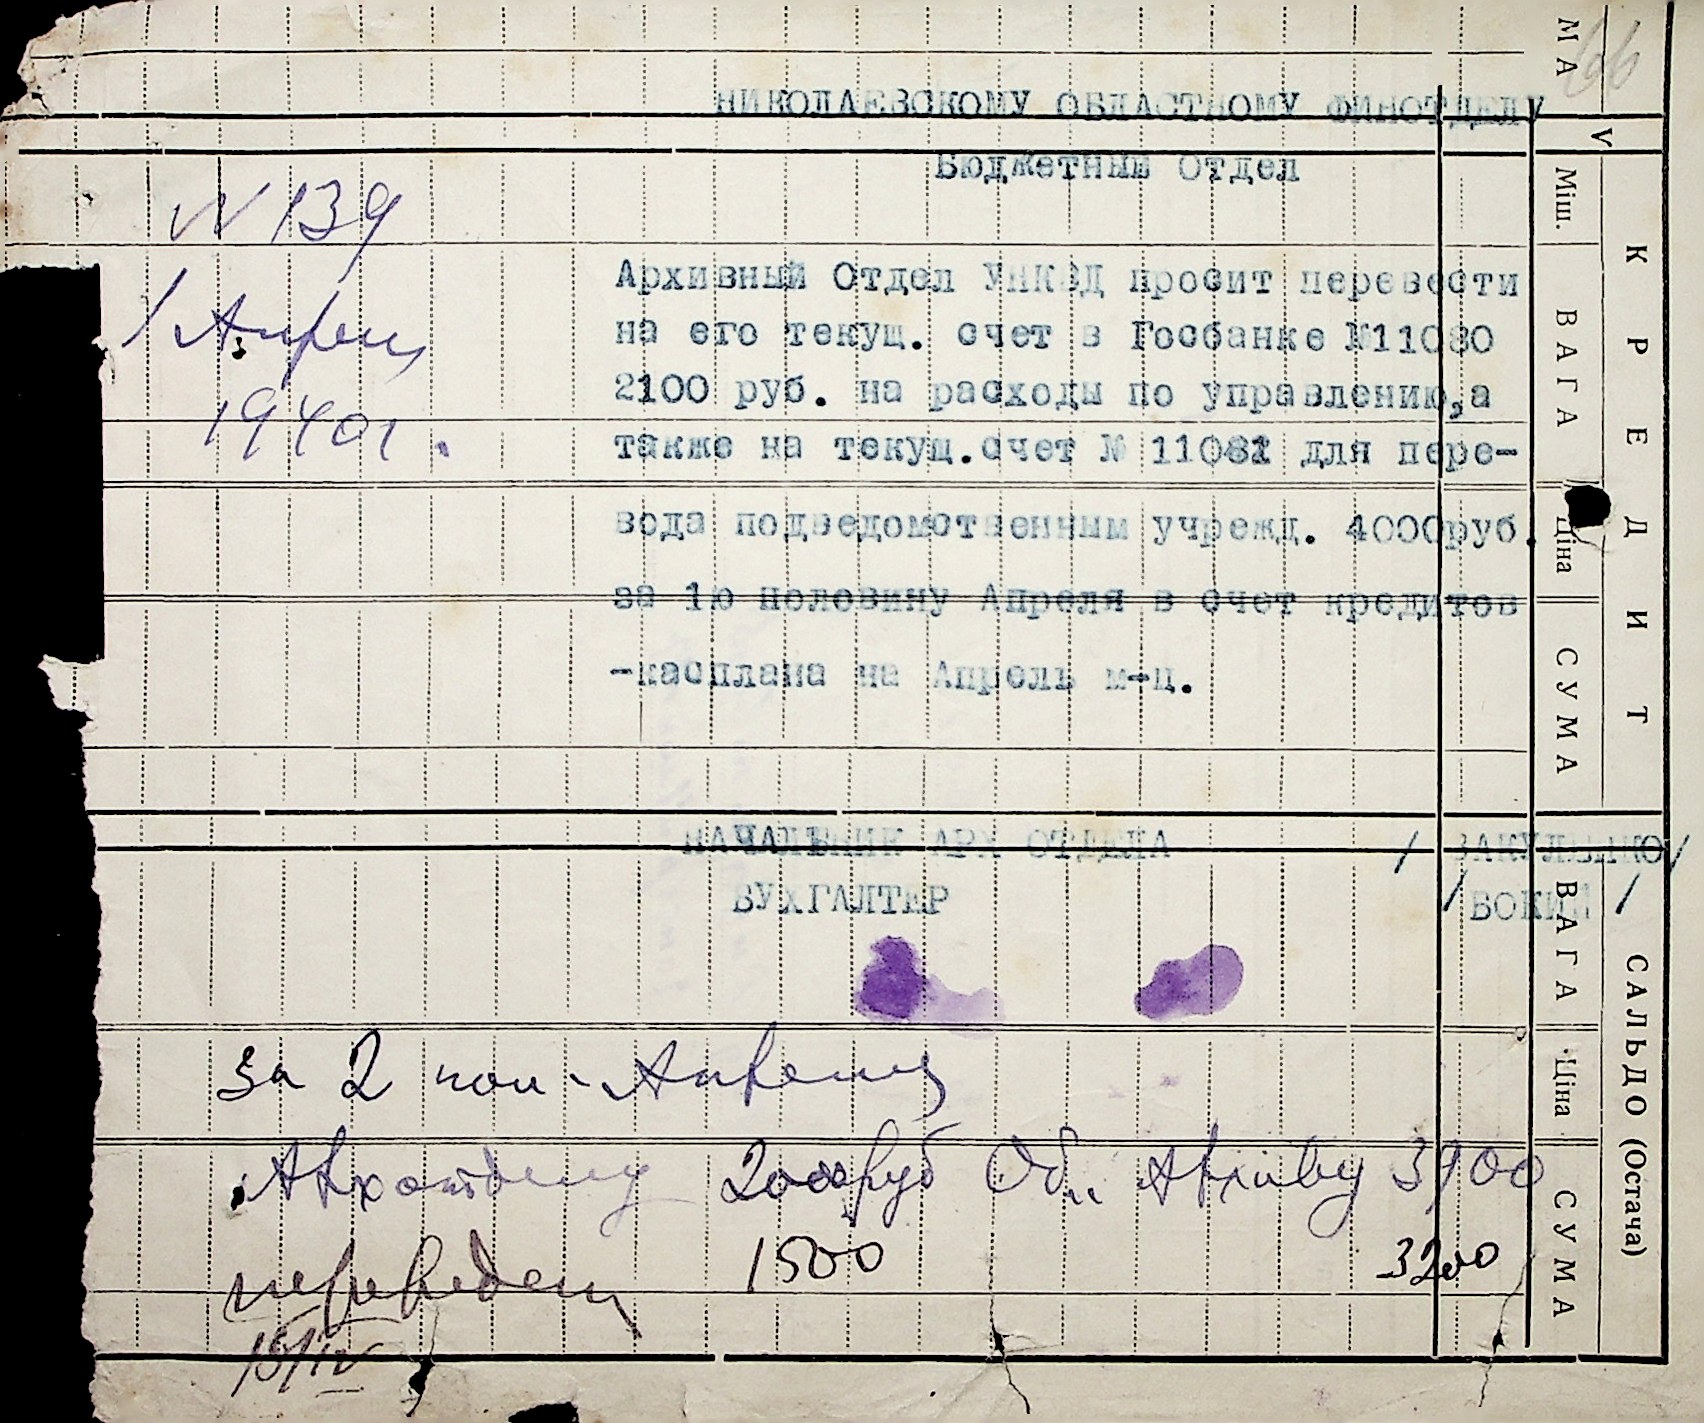 66
НИКОЛАЕВСКОМУ ОБЛАСТНОМУ ФИНОТДЕЛУ
Бюджетный Отдел
N 139
1 Апреля
1940г.
Архивный Отдел УНКВД просит перевести
на его текущ. счет в Госбанке №11080
2100 руб. на расходы по управлению,а
также на текущ.счет № 11081 для пере-
вода подведомственным учрежд. 4000руб.
за 1ю половину Апреля в счет кредитов
-касплана на Апрель м-ц.
НАЧАЛЬНИК АРХ ОТДЕЛА / ЗАКУЛЕНКО/
БУХГАЛТЕР / БОКИЙ /
За 2 пол- Апреля
Архотделу 2000руб Об. Архиву 3900
1500 3200
переведен
15/IV
М А
V
Міш.
ВАГА
Ціна
СУМА
КРЕДИТ
ВАГА
Ціна
СУМА
САЛЬДО (Остача)